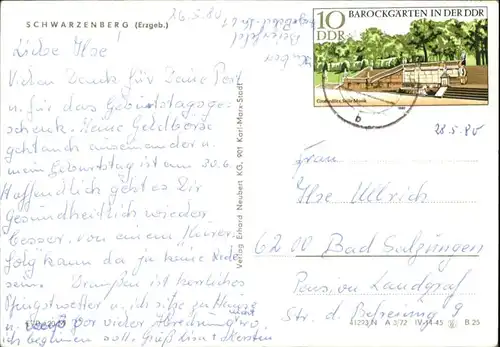 SCHWARZENBERG (Erzgeb.)
16.5.80
Beierfeld
10
DDR
BAROCKGÄRTEN IN DER DDR
Großsedlitz, Stille Musik
b
28.5.80
Liebe Ilse!
Vielen Dank für Deine Post
u. für das Geburtstagsge-
schenk. Meine Geldbörse
geht auch auseinander u.
mein Geburtstag ist am 30.6.
Hoffentlich geht es Dir
gesundheitlich wieder
besser, von einem
folg kann da ja keine Rede
sein. Draußen ist herrliches
Pfingstwetter u. ich sitze zu Hause
u. vor vieler nicht wo
ich beginnen soll. Gruß Kersten
Verlag Erhard Neubert KG, 901 Karl-Marx-Stadt
Frau
Ilse Ullrich
6200 Bad Salzungen
Pension Landgraf
Str. d. Befreiung 9
A 3/72 IV-14-45 B 25